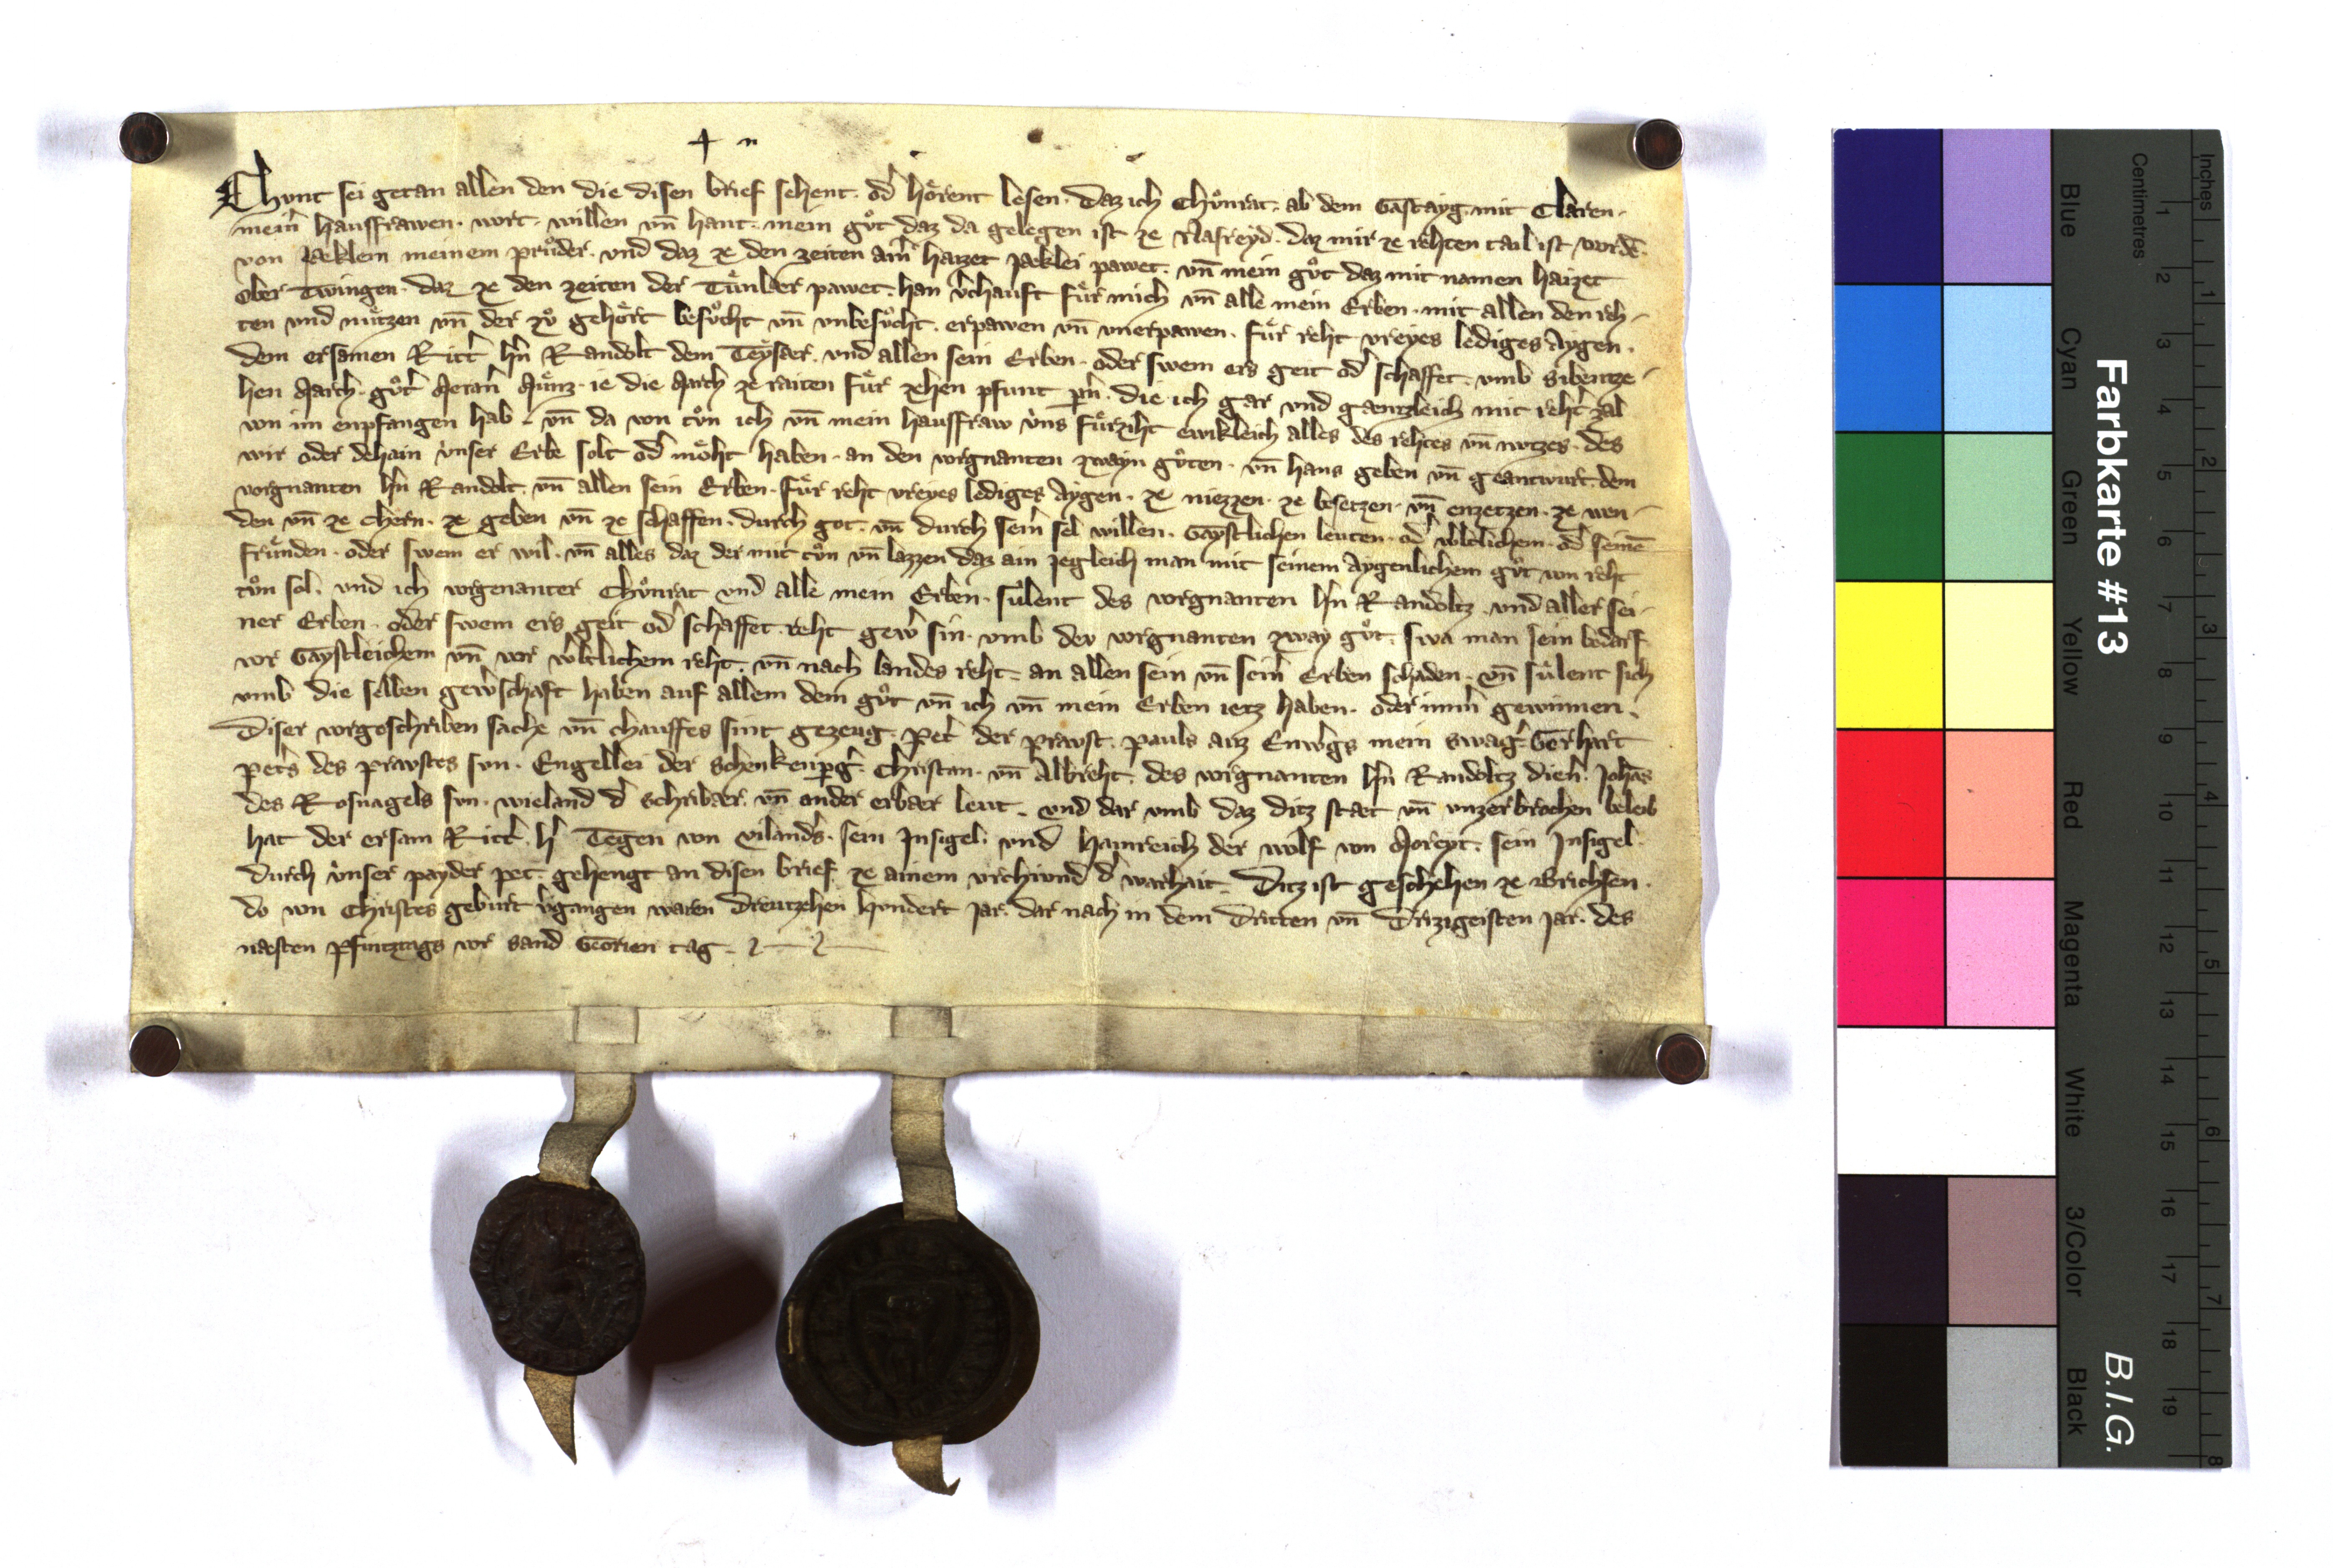 Chvnt sei getan allen den die disen brief sehent · od͛ hoͤrent lesen · daz ich Chuͦnrat · ab dem Gastayg · mit Claren ·
mein͛ hausfrawen · wort · willen vn̄ hant · mein guͦt daz da gelegen ist ze Nafreyd · daz mir ze rehten tail ist wordē ·
von Jaeklein meinem pruͦder · vnd daz ze den zeiten ain͛ haizet Jaeklei pawet · vn̄ mein guͦt daz mit namen haizet
Ober Twingen · daz ze den zeiten der Tuͤnber pawet · han v͛chauft fuͤr mich vn̄ alle mein Erben · mit allen den reh-
ten vnd nuͤtzen vn̄ der zuͦ gehoͤrt besuͦcht vn̄ vnbesuͦcht · erpawen vn̄ vnerpawen · fuͤr reht vreyes lediges Aygen ·
dem ersamen Ritt͛ h͛n Randolt dem Teyser · vnd allen sein Erben · oder swem ers geit od͛ schaffet · vmb sibentze-
hen March · guͦt͛ Meran͛ Muͤnz · ie die March ze raiten fuͤr zehen pfunt p̄n · die ich gar vnd gaentzleich mit reht͛ zal
von im enpfangen hab · vn̄ da von tuͦn ich vn̄ mein hausfraw vns fuͤrziht ewikleich alles des rehtes vn̄ nutzes · des
wir oder dehain vnser Erbe solt od͛ moͤht haben · an den vorgnanten zwayn guͦten · vn̄ hans geben vn̄ geantwurt dem
vorgnanten h͛n Randolt · vn̄ allen sein Erben · fuͤr reht vreyes lediges Aygen · ze niezzen · ze besetzen · vn̄ enzetzen · ze wen-
den vn̄ ze chern · ze geben vn̄ ze schaffen · durch got · vn̄ durch sein͛ sel willen · Gaystlichen leuten · od͛ w͛ltlichem · od͛ seinē
fruͤnden · oder swem er wil · vn̄ alles daz der mit tuͦn vn̄ lazzen daz ain jegleich man mit seinem Aygenlichem guͦt von reht
tuͦn sol · vnd ich vorgenanter Chuͦnrat vnd alle mein Erben · suͤlent des vorgnanten h͛n Randoltz · vnd aller sei-
ner Erben · oder swem ers geit od͛ schaffet · reht gew͛ sin · vmb dev vorgnanten zway guͦt · swa man sein bedarf
vor Gaystleichem vn̄ vor w͛ltlichem reht · vn̄ nach landes reht · an allen sein vn̄ sein͛ Erben schaden · vn̄ suͤlent sich
vmb die selben gew͛schaft haben auf allem dem guͦt vn̄ ich vn̄ mein Erben ietz haben · oder imm͛ gewinnen ·
Diser vorgeschriben sache vn̄ chauffes sint gezeug · Pet͛ der Pravst · Pauls auz Enw͛gs mein swag͛ · Gerhart
Pet͛s des Pravstes svn · Engellei der Schenkenp͛g͛ · Christan · vn̄ Albreht · des vorgnanten h͛n Randoltz dien͛ · Johās
des Rosnagels svn · wieland d͛ schribaer · vn̄ ander erbaer leut · vnd dar vmb daz ditz staet vn̄ vnzerbrochen beleib
hat der ersam Ritt͛ · h͛ Tegen von Vilands · sein Insigel · vnd Hainreich der wolf von Moreyt · sein Insigel ·
durch vnser payder pet · gehengt an disen brief ze ainem vrchvnd d͛ warhait · Ditz ist geschehen ze Brichsen ·
do von Christes geburt v͛gangen waren Dreutzehen hvndert Jar · dar nach in dem Dritten vn̄ Drizigeisten jar · des
naesten Pfintztags vor sand Georien tag ·
Farbkarte #13
B.I.G.
Centimetres
Inches
Blue
Cyan
Green
Yellow
Red
Magenta
White
3/Color
Black
1 2 3 4 5 6 7 8 9 10 11 12 13 14 15 16 17 18 19
1 2 3 4 5 6 7 8